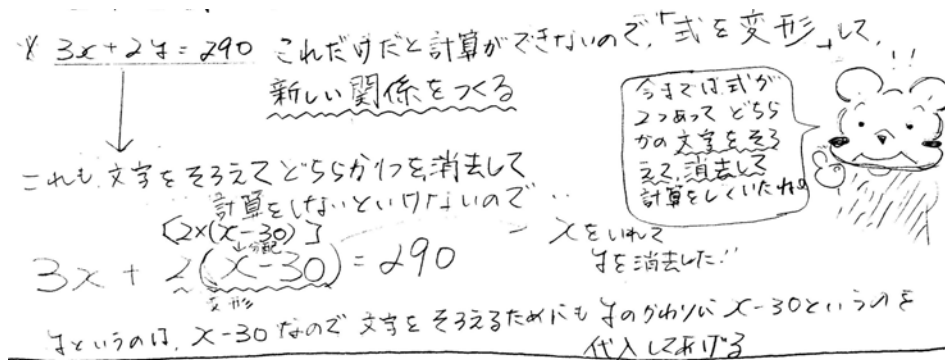 ※ 3x+2y=290 これだけだと計算ができないので,「式を変形」して,
新しい関係をつくる
今までは式が
2つあってどちら
かの文字をそろ
えて,消去して
計算をしていたね。
これも,文字をそろえてどちらか1つを消去して
計算をしないといけないので…
[2×(x-30)]
分配
3x + 2(x-30) = 290
変形
xをいれて
yを消去した!!
yというのは, x-30なので文字をそろえるためにもyのかわりにx-30というのを
代入してあげる